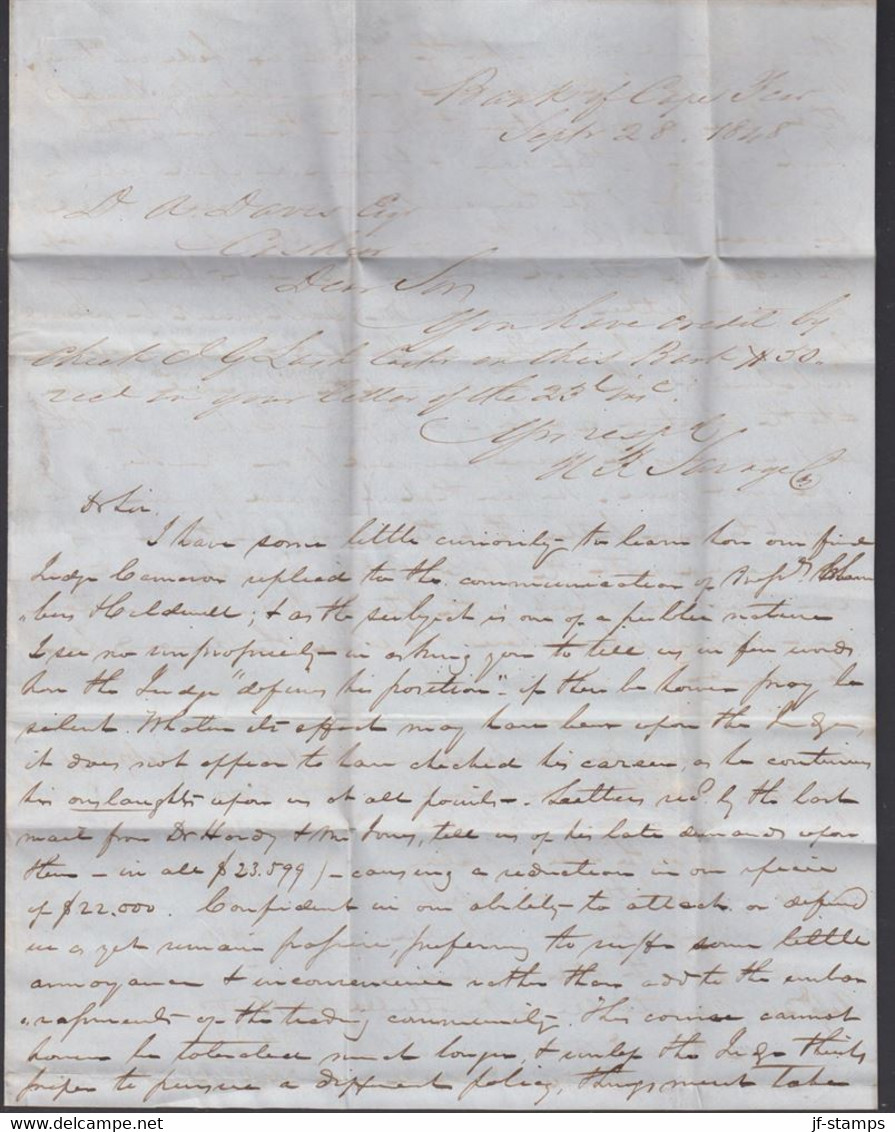 Bank of Cape Fear
Septr 28. 1848
D. A. Davis Esqr
Cashier
Dear Sir
You have credit by
check I G Lash Cashr on this Bank
recd in your letter of the 23d inst.
Yrs respy
H R Savage Cr
Dr Sir.
I have some little curiosity to learn how our friend
Judge Cameron replied to the communication of Cham
"bers & Caldwell; & as the subject is one of a public nature
I see no impropriety in asking you to tell us in few words
how the Judge "defines his position"- if there be however pray be
silent. Whatever its effect may have been upon the Judge,
it does not appear to have checked his career, as he continues
his onslaughts upon us at all points-. Letters recd. by the last
mail from Dr Hardy & Mr Jones, tell us of his late demands upon
them - in all $23.599 - causing a reduction in our specie
of $22.000. Confident in our ability to attack or defend
we as yet remain passive, preferring to suffer some little
annoyance & inconvenience rather than add to the embar
"rassments of the trading community. This course cannot
however be tolerated much longer, & unless the Judge thinks
proper to pursue a different policy, things must take
jf-stamps